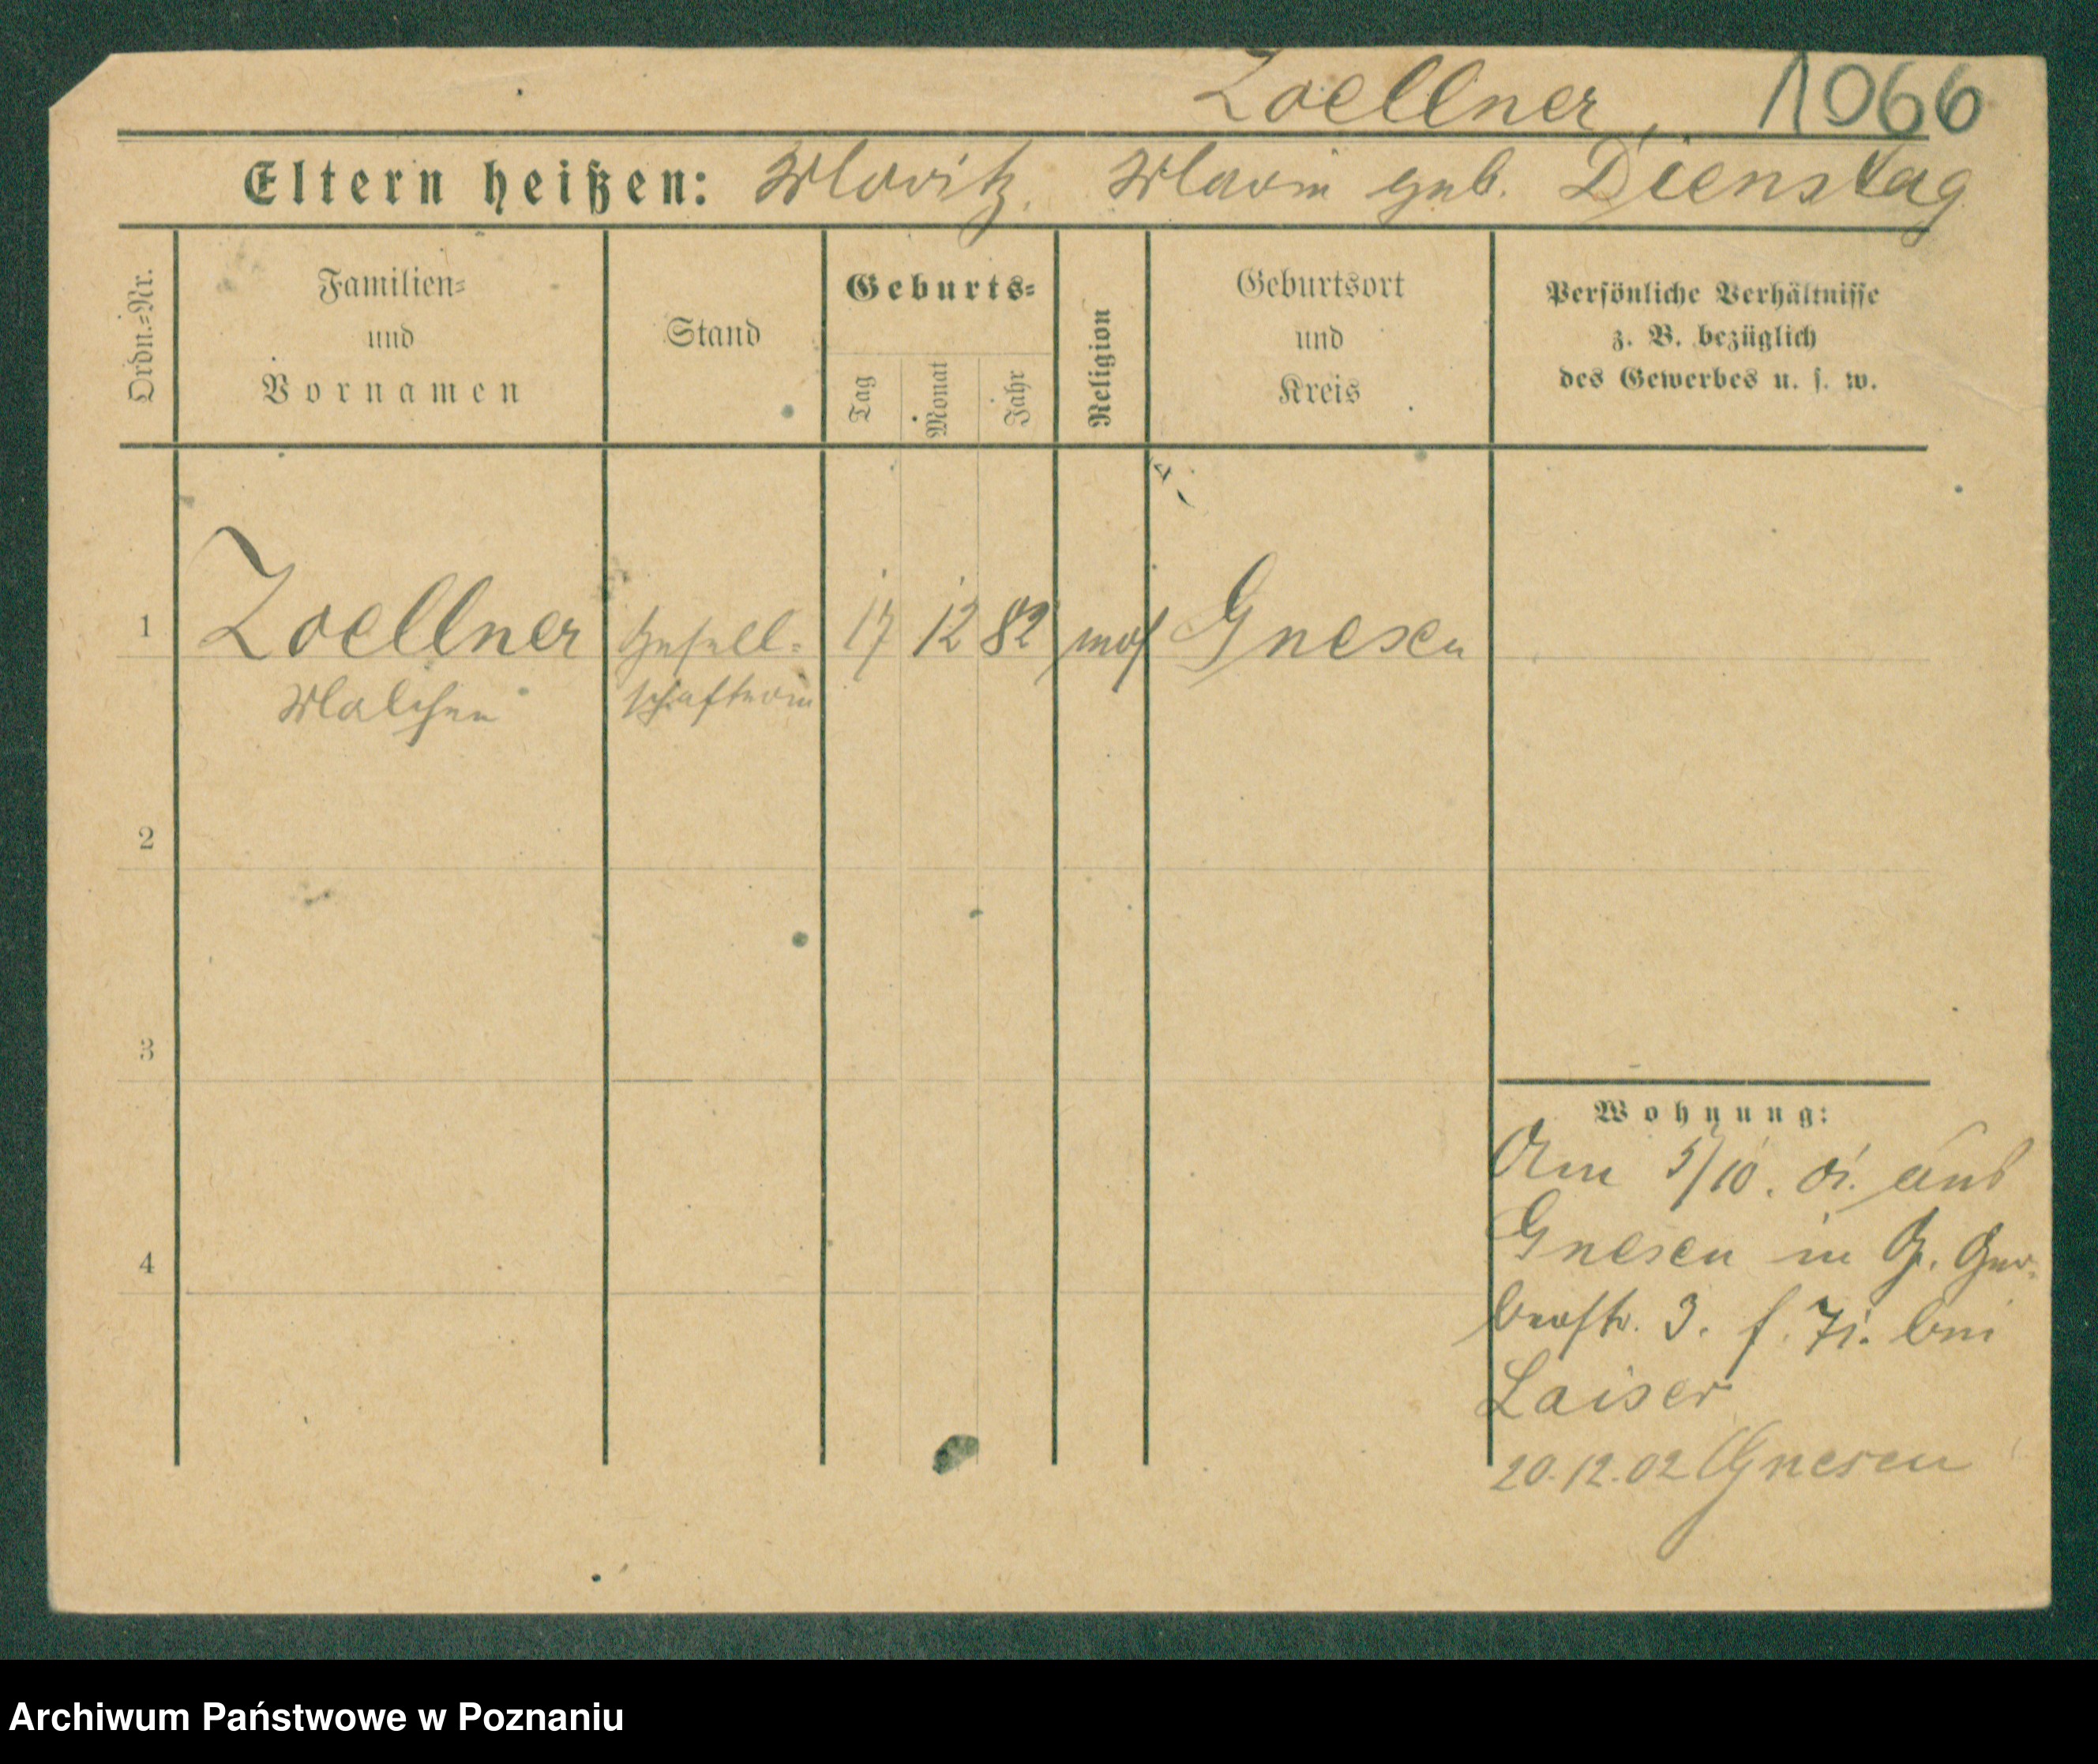 Zoellner 1066
Eltern heißen: Moritz, Marie geb. Dienstag
Ordn.=Nr.
Familien=
und
Vornamen
Stand
Geburts=
Tag
Monat
Jahr
Religion
Geburtsort
und
Kreis
Persönliche Verhältnisse
z. B. bezüglich
des Gewerbes u. s. w.
1 Zoellner Gesell= 17 12 82 mos Gnesen
Malchen schafterin
2
3
4
Wohnung:
Am 5/10. 01. aus
Gnesen in G. Ger=
berstr. 3. f. Zi. bei
Laiser
20.12.02 Gnesen
Archiwum Państwowe w Poznaniu